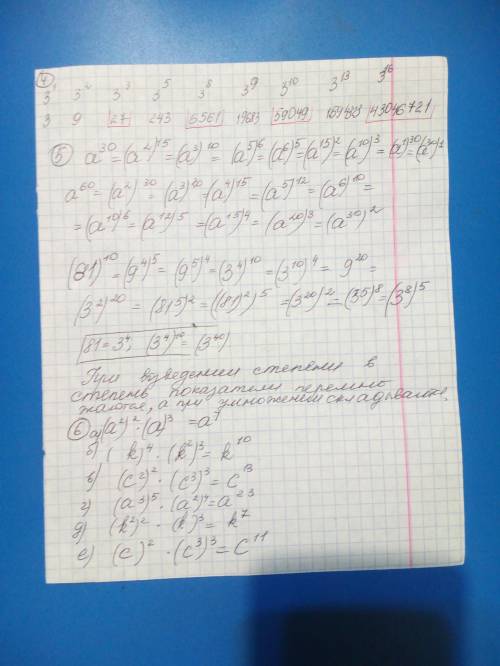 ④
3¹ 3² 3³ 3⁵ 3⁸ 3⁹ 3¹⁰ 3¹³ 3¹⁶
3 9 27 243 6561 19683 59049 43046721
⑤ a³⁰=(a²)¹⁵=(a³)¹⁰=(a⁵)⁶=(a⁶)⁵=(a¹⁵)²=(a¹⁰)³=(a¹)³⁰=(a³⁰)¹
a⁶⁰=(a²)³⁰=(a³)²⁰=(a⁴)¹⁵=(a⁵)¹²=(a⁶)¹⁰=
=(a¹⁰)⁶=(a¹²)⁵=(a¹⁵)⁴=(a²⁰)³=(a³⁰)²
(81)¹⁰=(9⁴)⁵=(9⁵)⁴=(3⁴)¹⁰=(3¹⁰)⁴=9²⁰=
(3²)²⁰=(81⁵)²=((81)²)⁵=(3²⁰)²=(3⁵)⁸=(3⁸)⁵
81=3⁴; (3⁴)¹⁰=(3⁴⁰)
При возведении степени в
степень показатели перемно
жаются, а при умножении складываются.
⑥ а) (a²)²·(a)³=a⁷
б) (k)⁴·(k²)³=k¹⁰
в) (c²)²·(c³)³=c¹³
г) (a³)⁵·(a²)⁴=a²³
д) (k²)²·(k)³=k⁷
е) (c)²·(c³)³=c¹¹